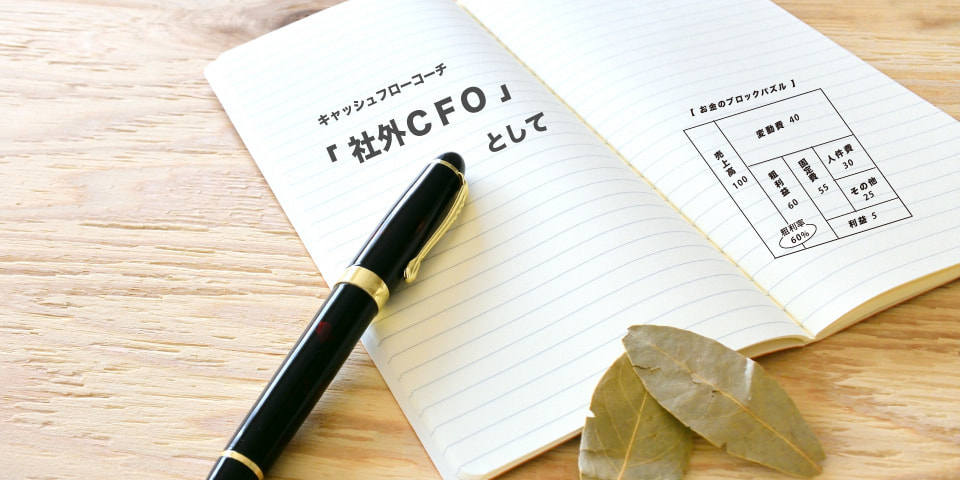 キャッシュフローコーチ
「社外CFO」
として
【 お金のブロックパズル 】
売上高 100
変動費 40
粗利益 60
粗利率 60%
固定費 55
人件費 30
その他 25
利益 5